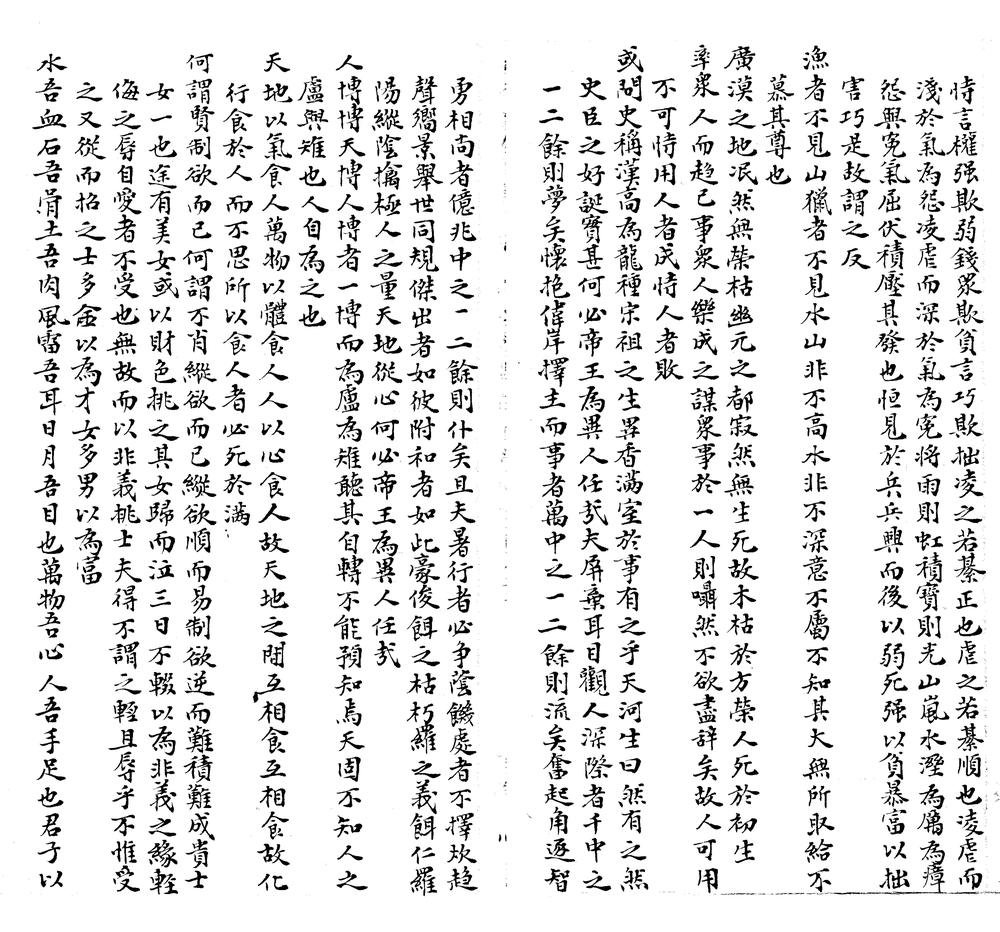 恃言權强欺弱錢眾欺貧言巧欺拙凌之若綦正也虐之若綦順也凌虐而
淺於氣為怨凌虐而深於氣為寃將雨則虹積寶則光山嵐水溼為厲為瘴
怨與寃氣屈伏積壓其發也恒見於兵兵興而後以弱死强以貧暴富以拙
害巧是故謂之反
漁者不見山獵者不見水山非不高水非不深意不屬不知其大無所取給不
慕其尊也
廣漠之地泯然無榮枯幽元之都寂然無生死故木枯於方榮人死於初生
率眾人而趋己事眾人樂成之謀眾事於一人則囁然不欲盡辞矣故人可用
不可恃用人者成恃人者敗
或問史稱漢高為龍種宋祖之生異香滿室於事有之乎天河生曰然有之然
史臣之好誕實甚何必帝王為異人任㢤夫屏棄耳目觀人深際者千中之
一二餘則夢矣懷抱偉岸擇主而事者萬中之一二餘則流矣奮起角逐智
勇相尚者億兆中之一二餘則什矣且夫暑行者必争陰饑處者不擇坎趋
聲嚮景舉世同規傑出者如彼附和者如此豪俊餌之枯朽羅之義餌仁羅
陽縱陰擒極人之量天地從心何必帝王為異人任㢤
人博博天博人博者一博而為盧為雉聽其自轉不能預知焉天固不知人之
盧與雉也人自為之也
天地以氣食人萬物以體食人人以心食人故天地之間互相食互相食故化
行食於人而不思所以食人者必死於滿
何謂賢制欲而已何謂不肖縱欲而已縱欲順而易制欲逆而難積難成貴士
女一也途有美女或以財色挑之其女歸而泣三日不輟以為非義之緣輕
侮之辱自愛者不受也無故而以非義挑士夫得不謂之輕且辱乎不惟受
之又從而招之士多金以為才女多男以為富
水吾血石吾骨土吾肉風雷吾耳日月吾目也萬物吾心人吾手足也君子以